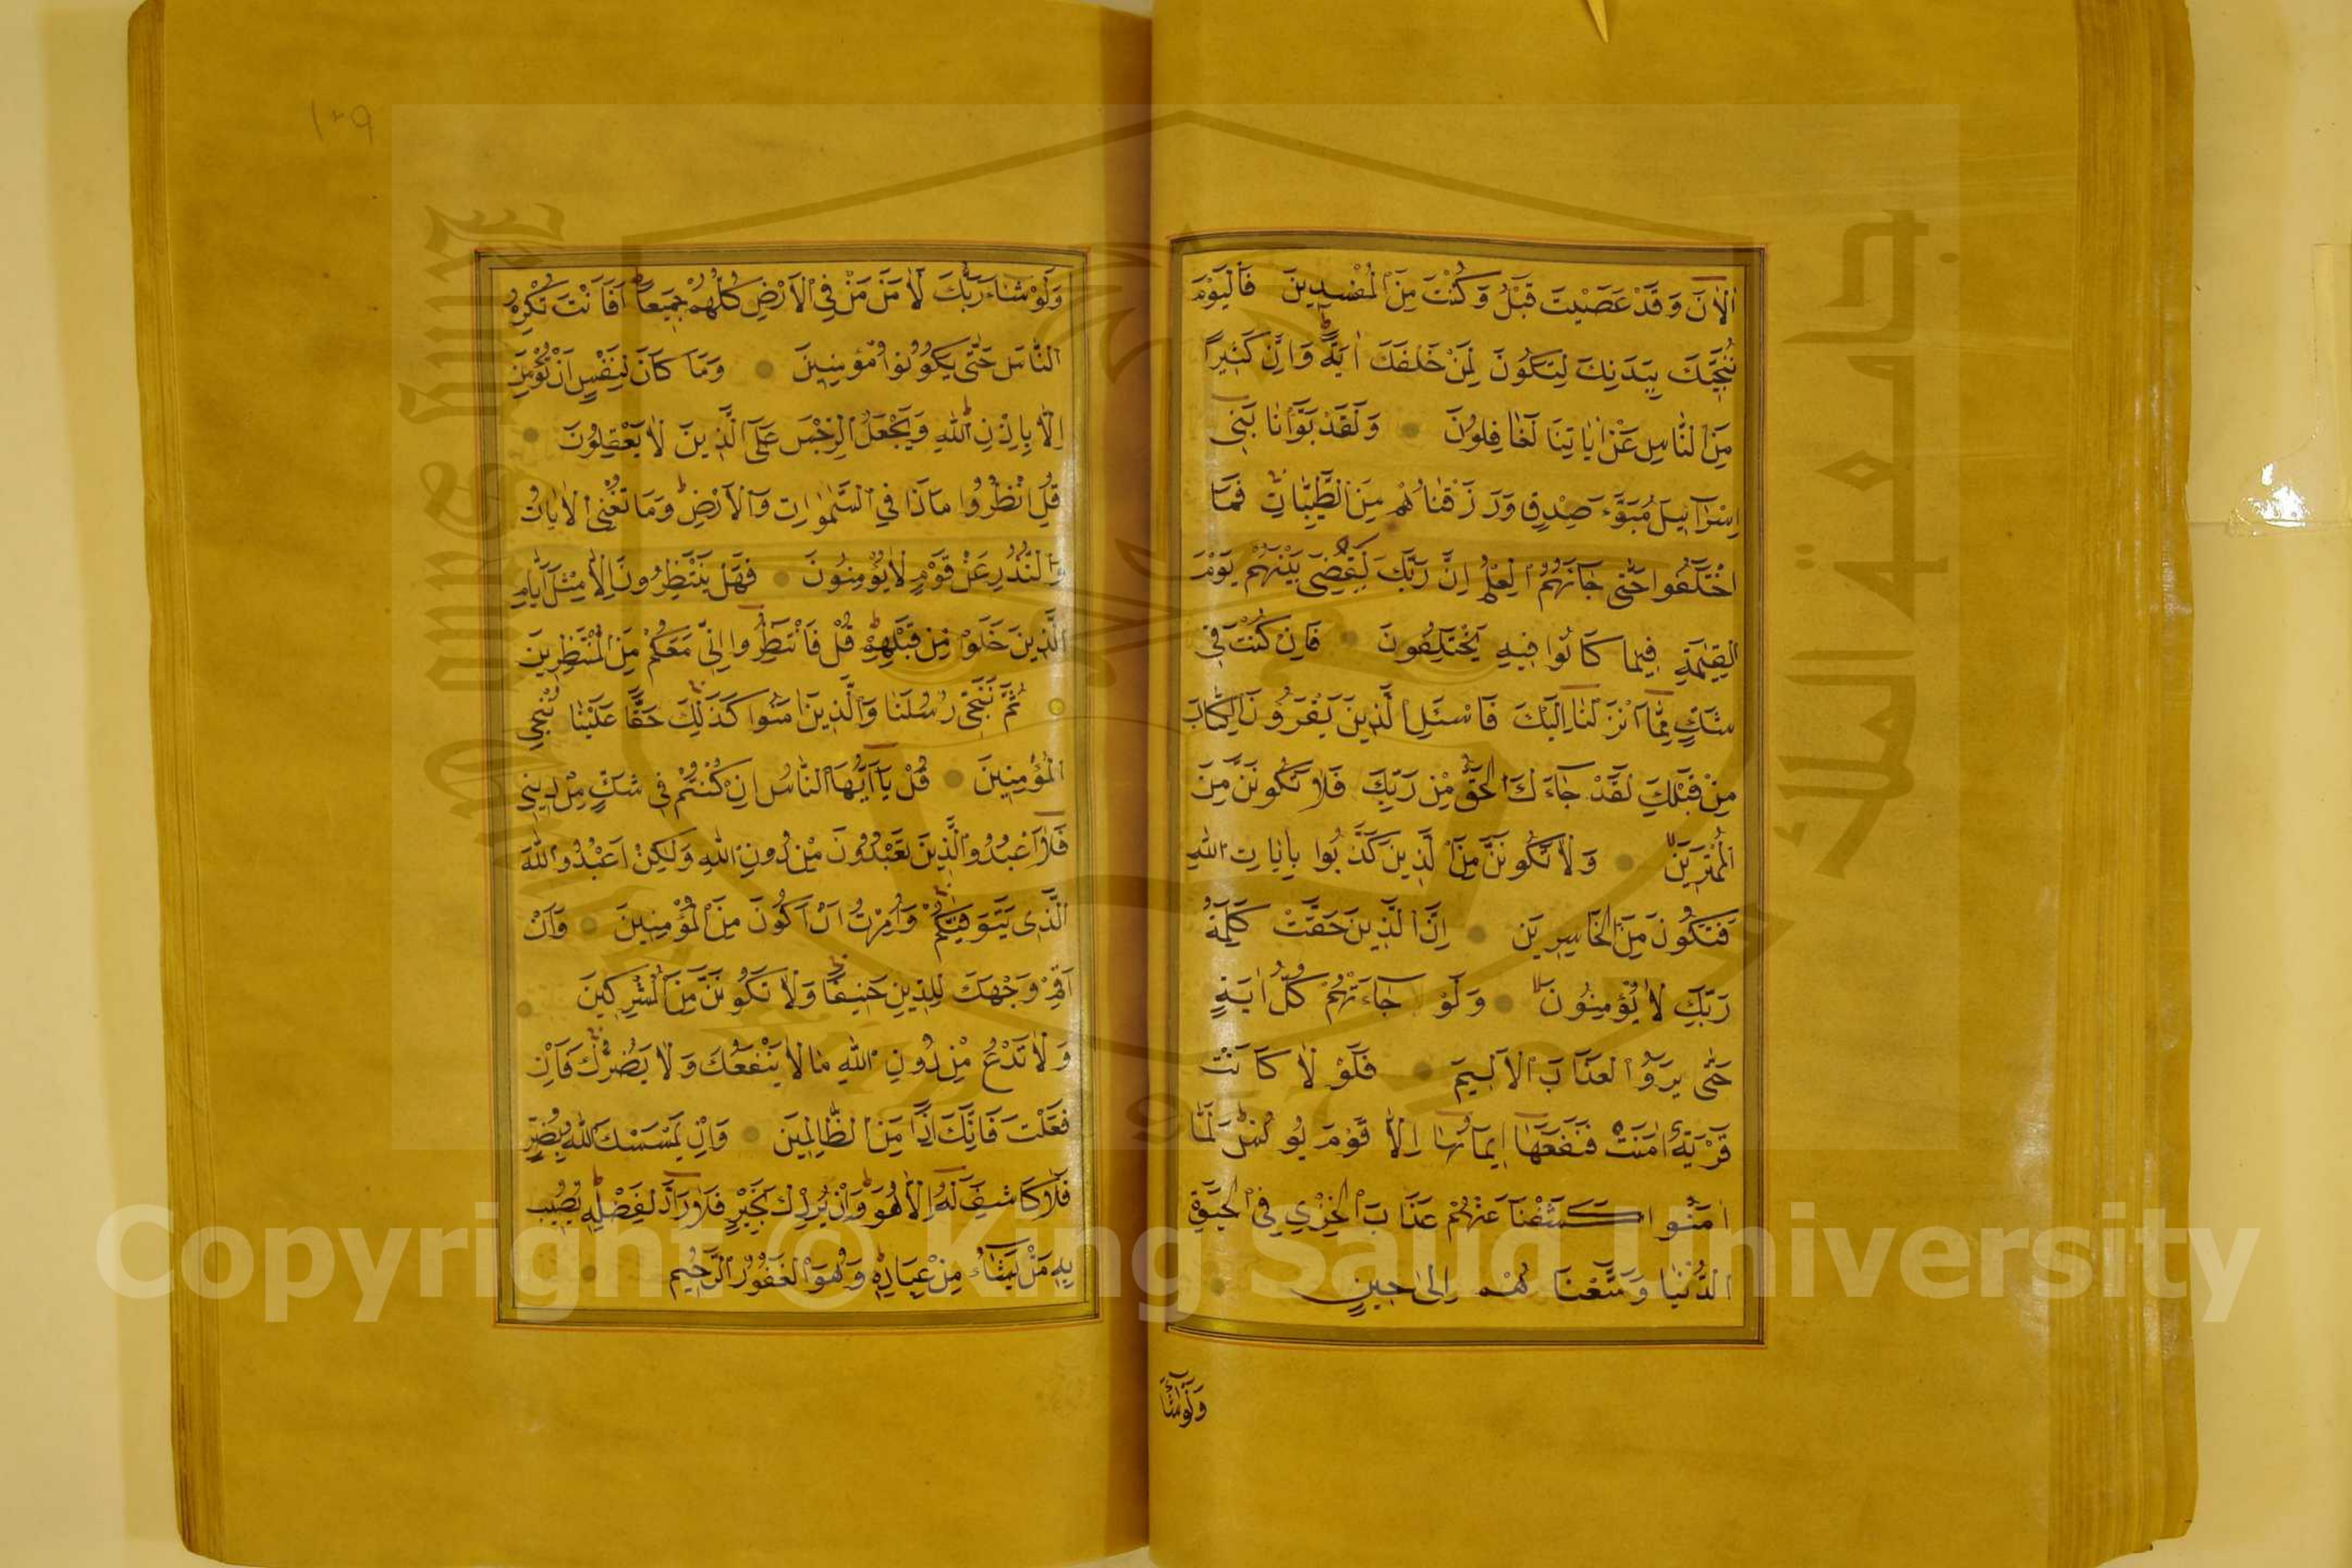 اٰلْاٰنَ وَقَدْ عَصَيْتَ قَبْلُ وَكُنْتَ مِنَ الْمُفْسِدِينَ فَالْيَوْمَ
نُنَجِّيكَ بِبَدَنِكَ لِتَكُونَ لِمَنْ خَلْفَكَ اٰيَةً وَاِنَّ كَثِيرًا
مِنَ النَّاسِ عَنْ اٰيَاتِنَا لَغَافِلُونَ وَلَقَدْ بَوَّأْنَا بَنِي
اِسْرَائِيلَ مُبَوَّءَ صِدْقٍ وَرَزَقْنَاهُمْ مِنَ الطَّيِّبَاتِ فَمَا
اخْتَلَفُوا حَتّٰى جَاءَهُمُ الْعِلْمُ اِنَّ رَبَّكَ يَقْضِي بَيْنَهُمْ يَوْمَ
الْقِيٰمَةِ فِيمَا كَانُوا فِيهِ يَخْتَلِفُونَ فَاِنْ كُنْتَ فِي
شَكٍّ مِمَّا اَنْزَلْنَا اِلَيْكَ فَاسْئَلِ الَّذِينَ يَقْرَؤُنَ الْكِتَابَ
مِنْ قَبْلِكَ لَقَدْ جَاءَكَ الْحَقُّ مِنْ رَبِّكَ فَلَا تَكُونَنَّ مِنَ
الْمُمْتَرِينَ وَلَا تَكُونَنَّ مِنَ الَّذِينَ كَذَّبُوا بِاٰيَاتِ اللّٰهِ
فَتَكُونَ مِنَ الْخَاسِرِينَ اِنَّ الَّذِينَ حَقَّتْ عَلَيْهِمْ كَلِمَةُ
رَبِّكَ لَا يُؤْمِنُونَ وَلَوْ جَاءَتْهُمْ كُلُّ اٰيَةٍ
حَتّٰى يَرَوُا الْعَذَابَ الْاَلِيمَ فَلَوْلَا كَانَتْ
قَرْيَةٌ اٰمَنَتْ فَنَفَعَهَا اِيمَانُهَا اِلَّا قَوْمَ يُونُسَ لَمَّا
اٰمَنُوا كَشَفْنَا عَنْهُمْ عَذَابَ الْخِزْيِ فِي الْحَيٰوةِ
الدُّنْيَا وَمَتَّعْنَاهُمْ اِلٰى حِينٍ
وَلَوْ شَاءَ
١٢٩
وَلَوْ شَاءَ رَبُّكَ لَاٰمَنَ مَنْ فِي الْاَرْضِ كُلُّهُمْ جَمِيعًا اَفَاَنْتَ تُكْرِهُ
النَّاسَ حَتّٰى يَكُونُوا مُؤْمِنِينَ وَمَا كَانَ لِنَفْسٍ اَنْ تُؤْمِنَ
اِلَّا بِاِذْنِ اللّٰهِ وَيَجْعَلُ الرِّجْسَ عَلَى الَّذِينَ لَا يَعْقِلُونَ
قُلِ انْظُرُوا مَاذَا فِي السَّمٰوَاتِ وَالْاَرْضِ وَمَا تُغْنِي الْاٰيَاتُ
وَالنُّذُرُ عَنْ قَوْمٍ لَا يُؤْمِنُونَ فَهَلْ يَنْتَظِرُونَ اِلَّا مِثْلَ اَيَّامِ
الَّذِينَ خَلَوْا مِنْ قَبْلِهِمْ قُلْ فَانْتَظِرُوا اِنِّي مَعَكُمْ مِنَ الْمُنْتَظِرِينَ
ثُمَّ نُنَجِّي رُسُلَنَا وَالَّذِينَ اٰمَنُوا كَذٰلِكَ حَقًّا عَلَيْنَا نُنْجِ
الْمُؤْمِنِينَ قُلْ يَا اَيُّهَا النَّاسُ اِنْ كُنْتُمْ فِي شَكٍّ مِنْ دِينِي
فَلَا اَعْبُدُ الَّذِينَ تَعْبُدُونَ مِنْ دُونِ اللّٰهِ وَلٰكِنْ اَعْبُدُ اللّٰهَ
الَّذِي يَتَوَفّٰيكُمْ وَاُمِرْتُ اَنْ اَكُونَ مِنَ الْمُؤْمِنِينَ وَاَنْ
اَقِمْ وَجْهَكَ لِلدِّينِ حَنِيفًا وَلَا تَكُونَنَّ مِنَ الْمُشْرِكِينَ
وَلَا تَدْعُ مِنْ دُونِ اللّٰهِ مَا لَا يَنْفَعُكَ وَلَا يَضُرُّكَ فَاِنْ
فَعَلْتَ فَاِنَّكَ اِذًا مِنَ الظَّالِمِينَ وَاِنْ يَمْسَسْكَ اللّٰهُ بِضُرٍّ
فَلَا كَاشِفَ لَهُ اِلَّا هُوَ وَاِنْ يُرِدْكَ بِخَيْرٍ فَلَا رَادَّ لِفَضْلِهِ يُصِيبُ
بِهِ مَنْ يَشَاءُ مِنْ عِبَادِهِ وَهُوَ الْغَفُورُ الرَّحِيمُ
Copyright © King Saud University